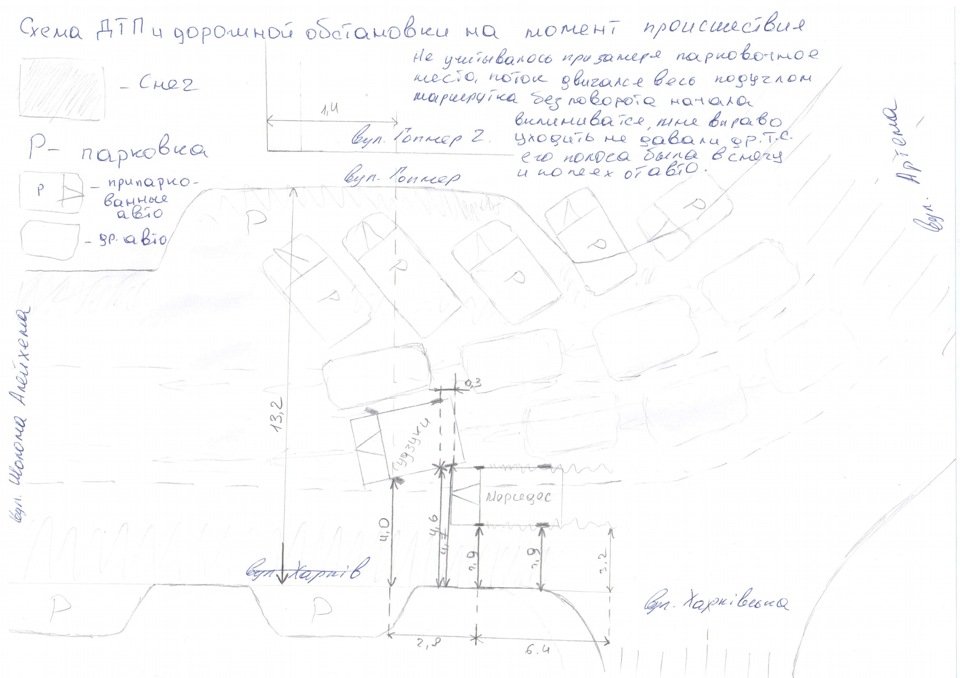 Схема ДТП и дорожной обстановки на момент происшествия
- Снег
Р- парковка
Р
- припарко-
ванные
авто
- др. авто
Не учитывалось при замере парковочное
место, поток двигался весь под углом
маршрутка без поворота начала
вклиниватся, мне вправо
уходить не давали др.Т.С.
его полоса была в снегу
и колеях от авто.
1,4
вул. Гопнер 2.
вул. Гопнер
вул. Артема
вул. Шолома Алейхема
Р
Р
Р
Р
Р
Р
13,2
0,3
Судзуки
Мерседес
4,0
4,6
4,7
2,9
2,9
3,2
вул. Харків
вул. Харківська
Р
Р
2,8
6.4